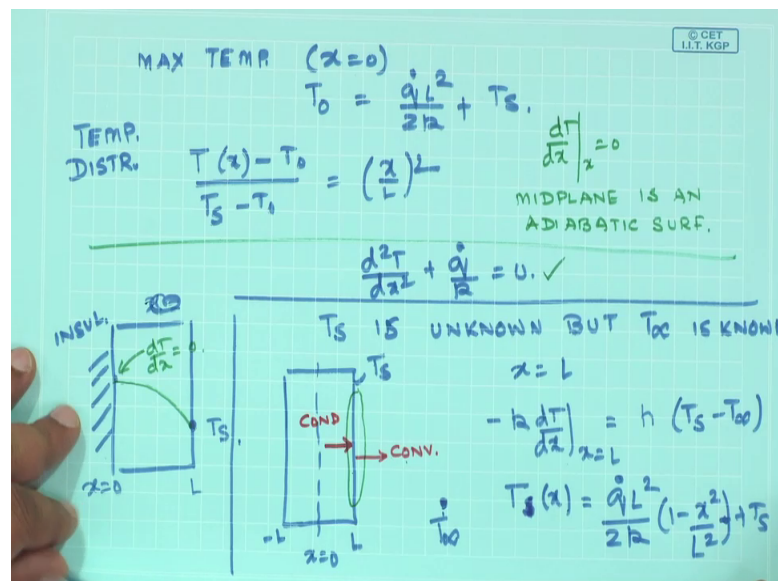 © CET
I.I.T. KGP
MAX TEMP. (x=0)
T₀ = q̇L²/2k + Ts.
TEMP.
DISTR.
T(x) - T₀ / Ts - T₀ = (x/L)²
dT/dx|x = 0
MIDPLANE IS AN
ADIABATIC SURF.
d²T/dx² + q̇/k = 0. ✓
INSUL.
dT/dx = 0.
Ts.
x=0 L
Ts IS UNKNOWN BUT T∞ IS KNOW
Ts
x = L
COND
CONV.
-k dT/dx|x=L = h (Ts - T∞)
T∞
T(x) = q̇L²/2k (1 - x²/L²) + Ts
-L x=0 L